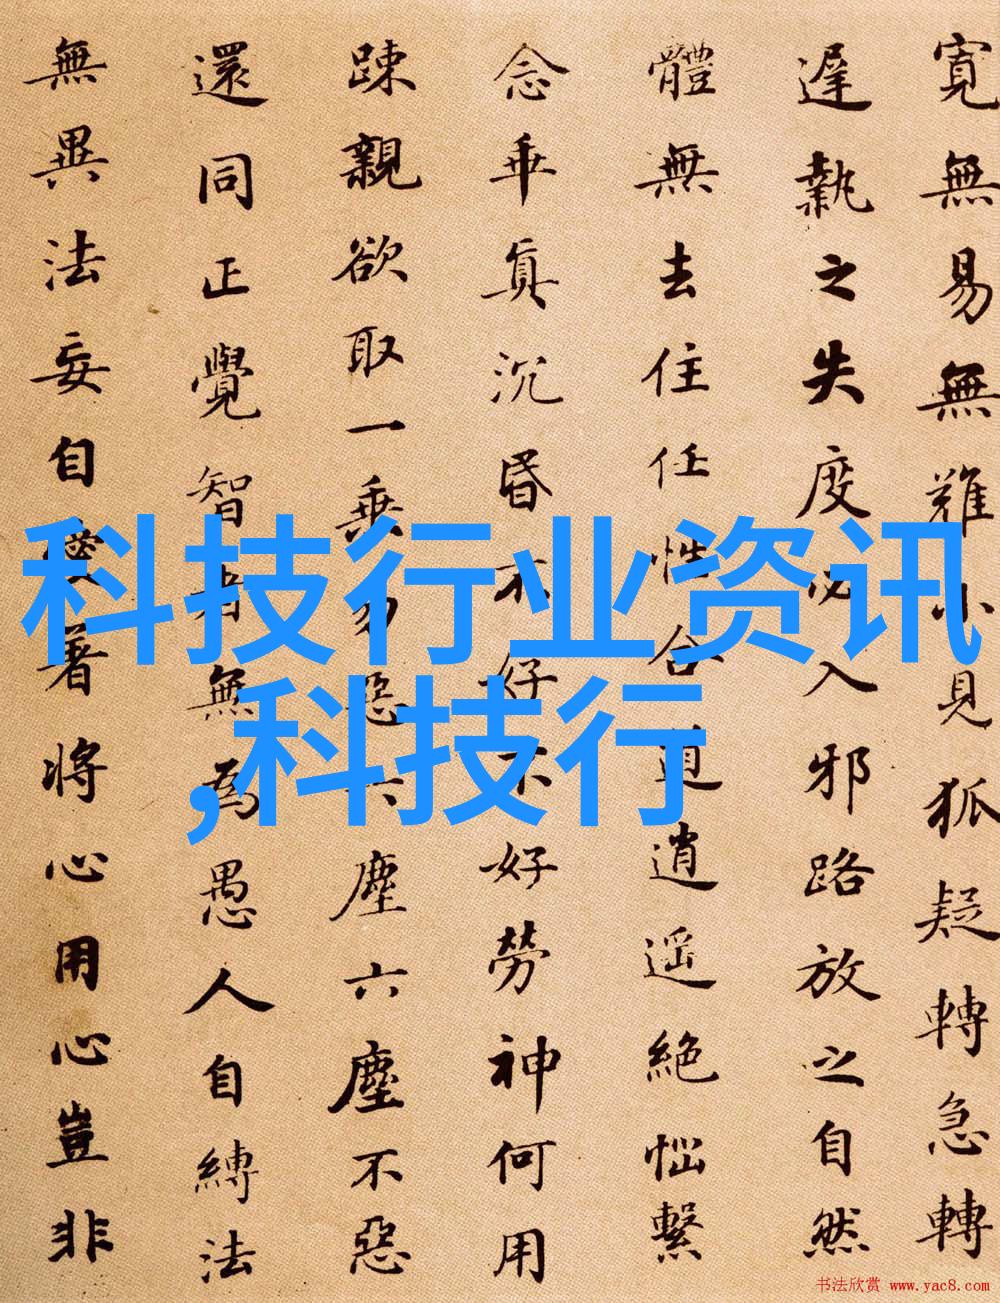 寬無易無難小見狐疑轉急轉
遲執之失度必入邪路放之自然
體無去住任性合道逍遥絶惱繫
念乖真沉昏不好不好勞神何用
踈親欲取一乗勿惡六塵六塵不惡
還同正覺智者無為愚人自縛法
無異法妄自愛著將心用心豈非
科技行业资讯
,科技行
书法欣赏 www.yac8.com